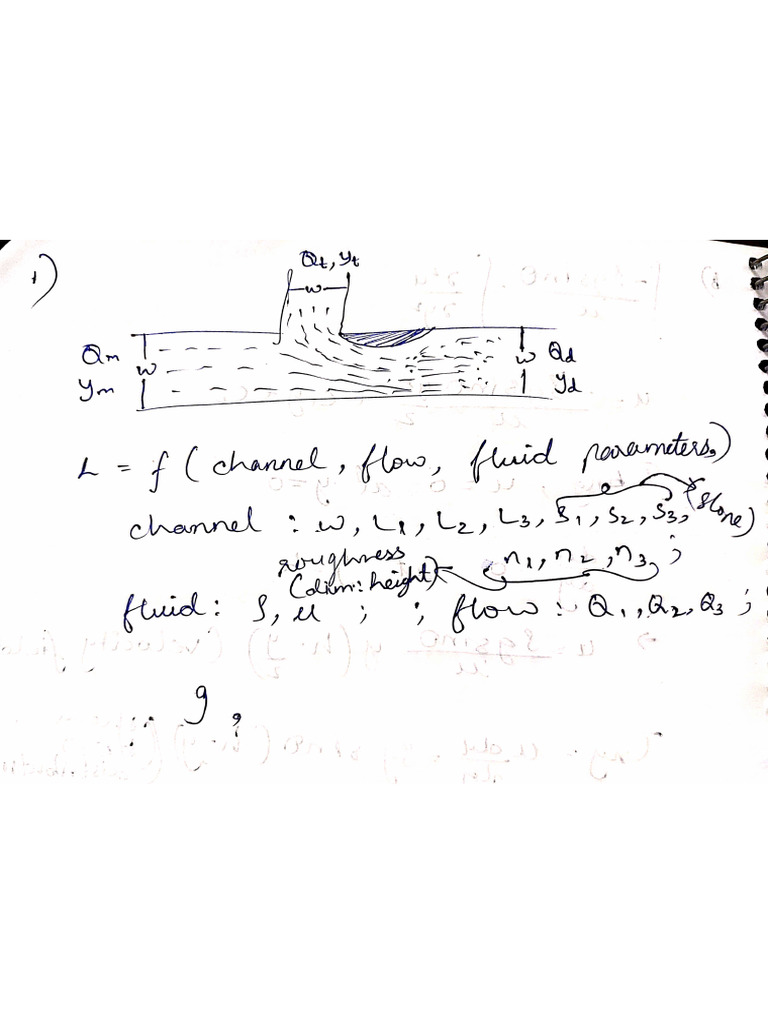 1)
Qt, yt
w
Qm w w Qd
ym yd
L = f ( channel, flow, fluid parameters.)
channel : w, L1, L2, L3, S1, S2, S3, (slope)
roughness n1, n2, n3 ;
(dim: height)
fluid: ρ, μ ; ; flow: Q1, Q2, Q3 ;
g ,